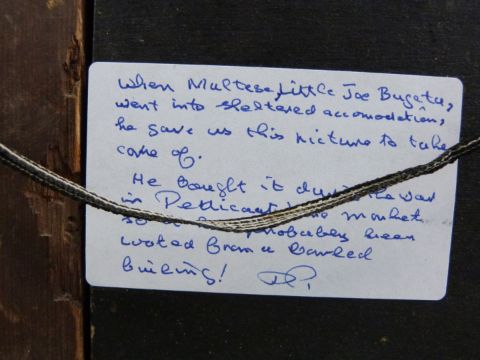 When Maltese, Little Joe Bugeta,
went into sheltered accomodation,
he gave us this picture to take
care of.
He bought it during the war
in Petticoat Lane market
so it probably been
looted from a bombed
building!